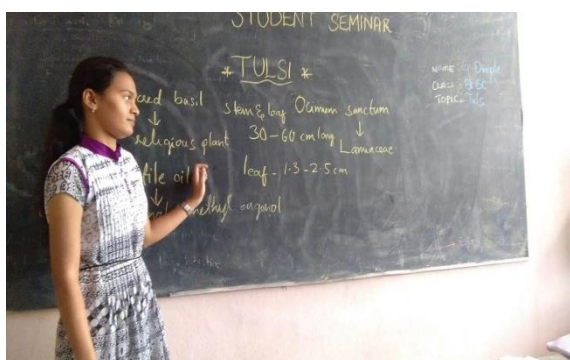 STUDENT SEMINAR
* TULSI *
NAME :
CLASS :
TOPIC -
basil
stem & leaf Ocimum sanctum
↓
↓
religious plant
30-60 cm long
Laminaceae
oil
leaf - 1.3-2.5 cm
↓
methyl eugonol